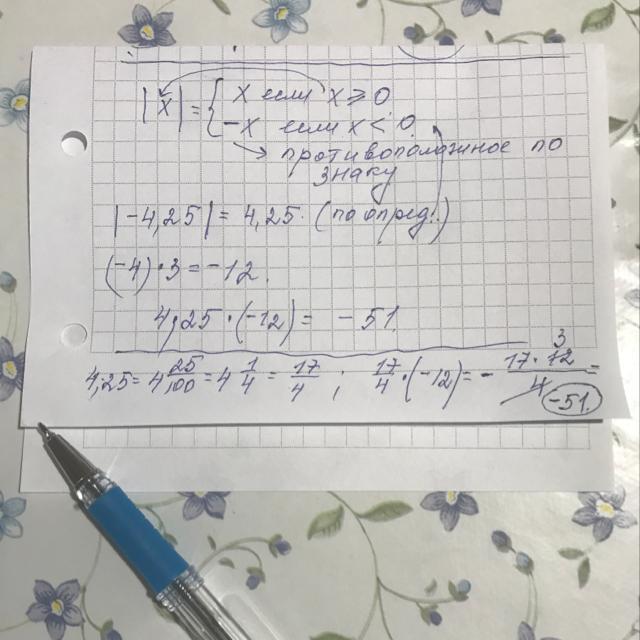 |x| = { x если x ⩾ 0
-x если x < 0
→ противоположное по
знаку
|-4,25| = 4,25. (по опред.)
(-4) · 3 = -12.
4,25 · (-12) = -51.
4,25 = 4 25/100 = 4 1/4 = 17/4 ; 17/4 · (-12) = - 17 · 12/4 =
3
-51